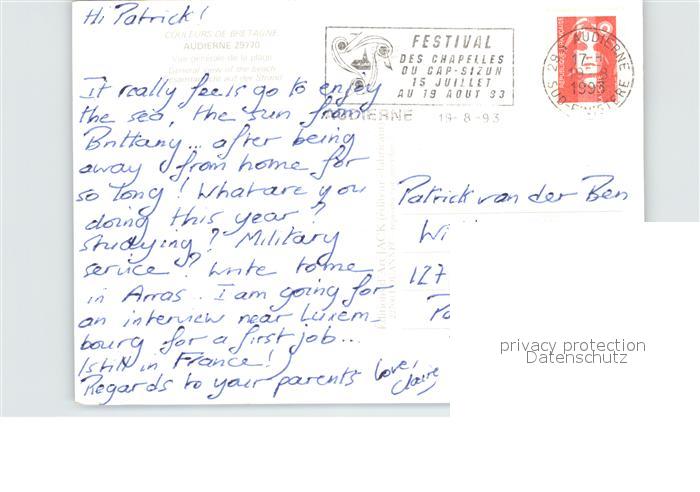 Hi Patrick!
COULEURS DE BRETAGNE
AUDIERNE 29770
Vue générale de la plage
General view of the beach
Gesamtansicht auf der Strand
It really feels go to enjoy
the sea, the sun from
Brittany... after being
away from home for
so long! What are you
doing this year?
studying? Military
service? Write to me
in Arras.. I am going for
an interview near Luxem-
bourg for a first job...
(still in France!)
Regards to your parents
Love,
Claire
FESTIVAL
DES CHAPELLES
DU CAP-SIZUN
15 JUILLET
AU 19 AOUT 93
AUDIERNE 19-8-93
29 AUDIERNE
1993
SUD FINISTERE
Patrick van der Ben
Wi
127
privacy protection
Datenschutz